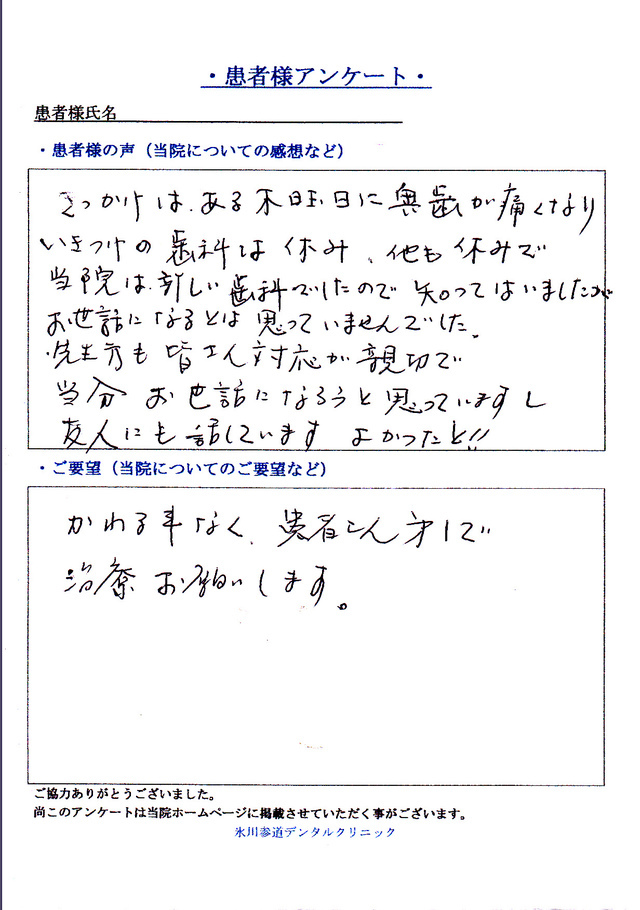 ・患者様アンケート・
患者様氏名
・患者様の声（当院についての感想など）
きっかけは、ある木曜日に奥歯が痛くなり
いきつけの歯科は休み、他も休みで
当院は、新しい歯科でしたので知ってはいましたが
お世話になるとは思っていませんでした。
先生方も皆さん対応が親切で
当分お世話になろうと思っていますし
友人にも話しています よかったと!!
・ご要望（当院についてのご要望など）
かわる事なく、患者さん才一で
治療お願いします。
ご協力ありがとうございました。
尚このアンケートは当院ホームページに掲載させていただく事がございます。
氷川参道デンタルクリニック